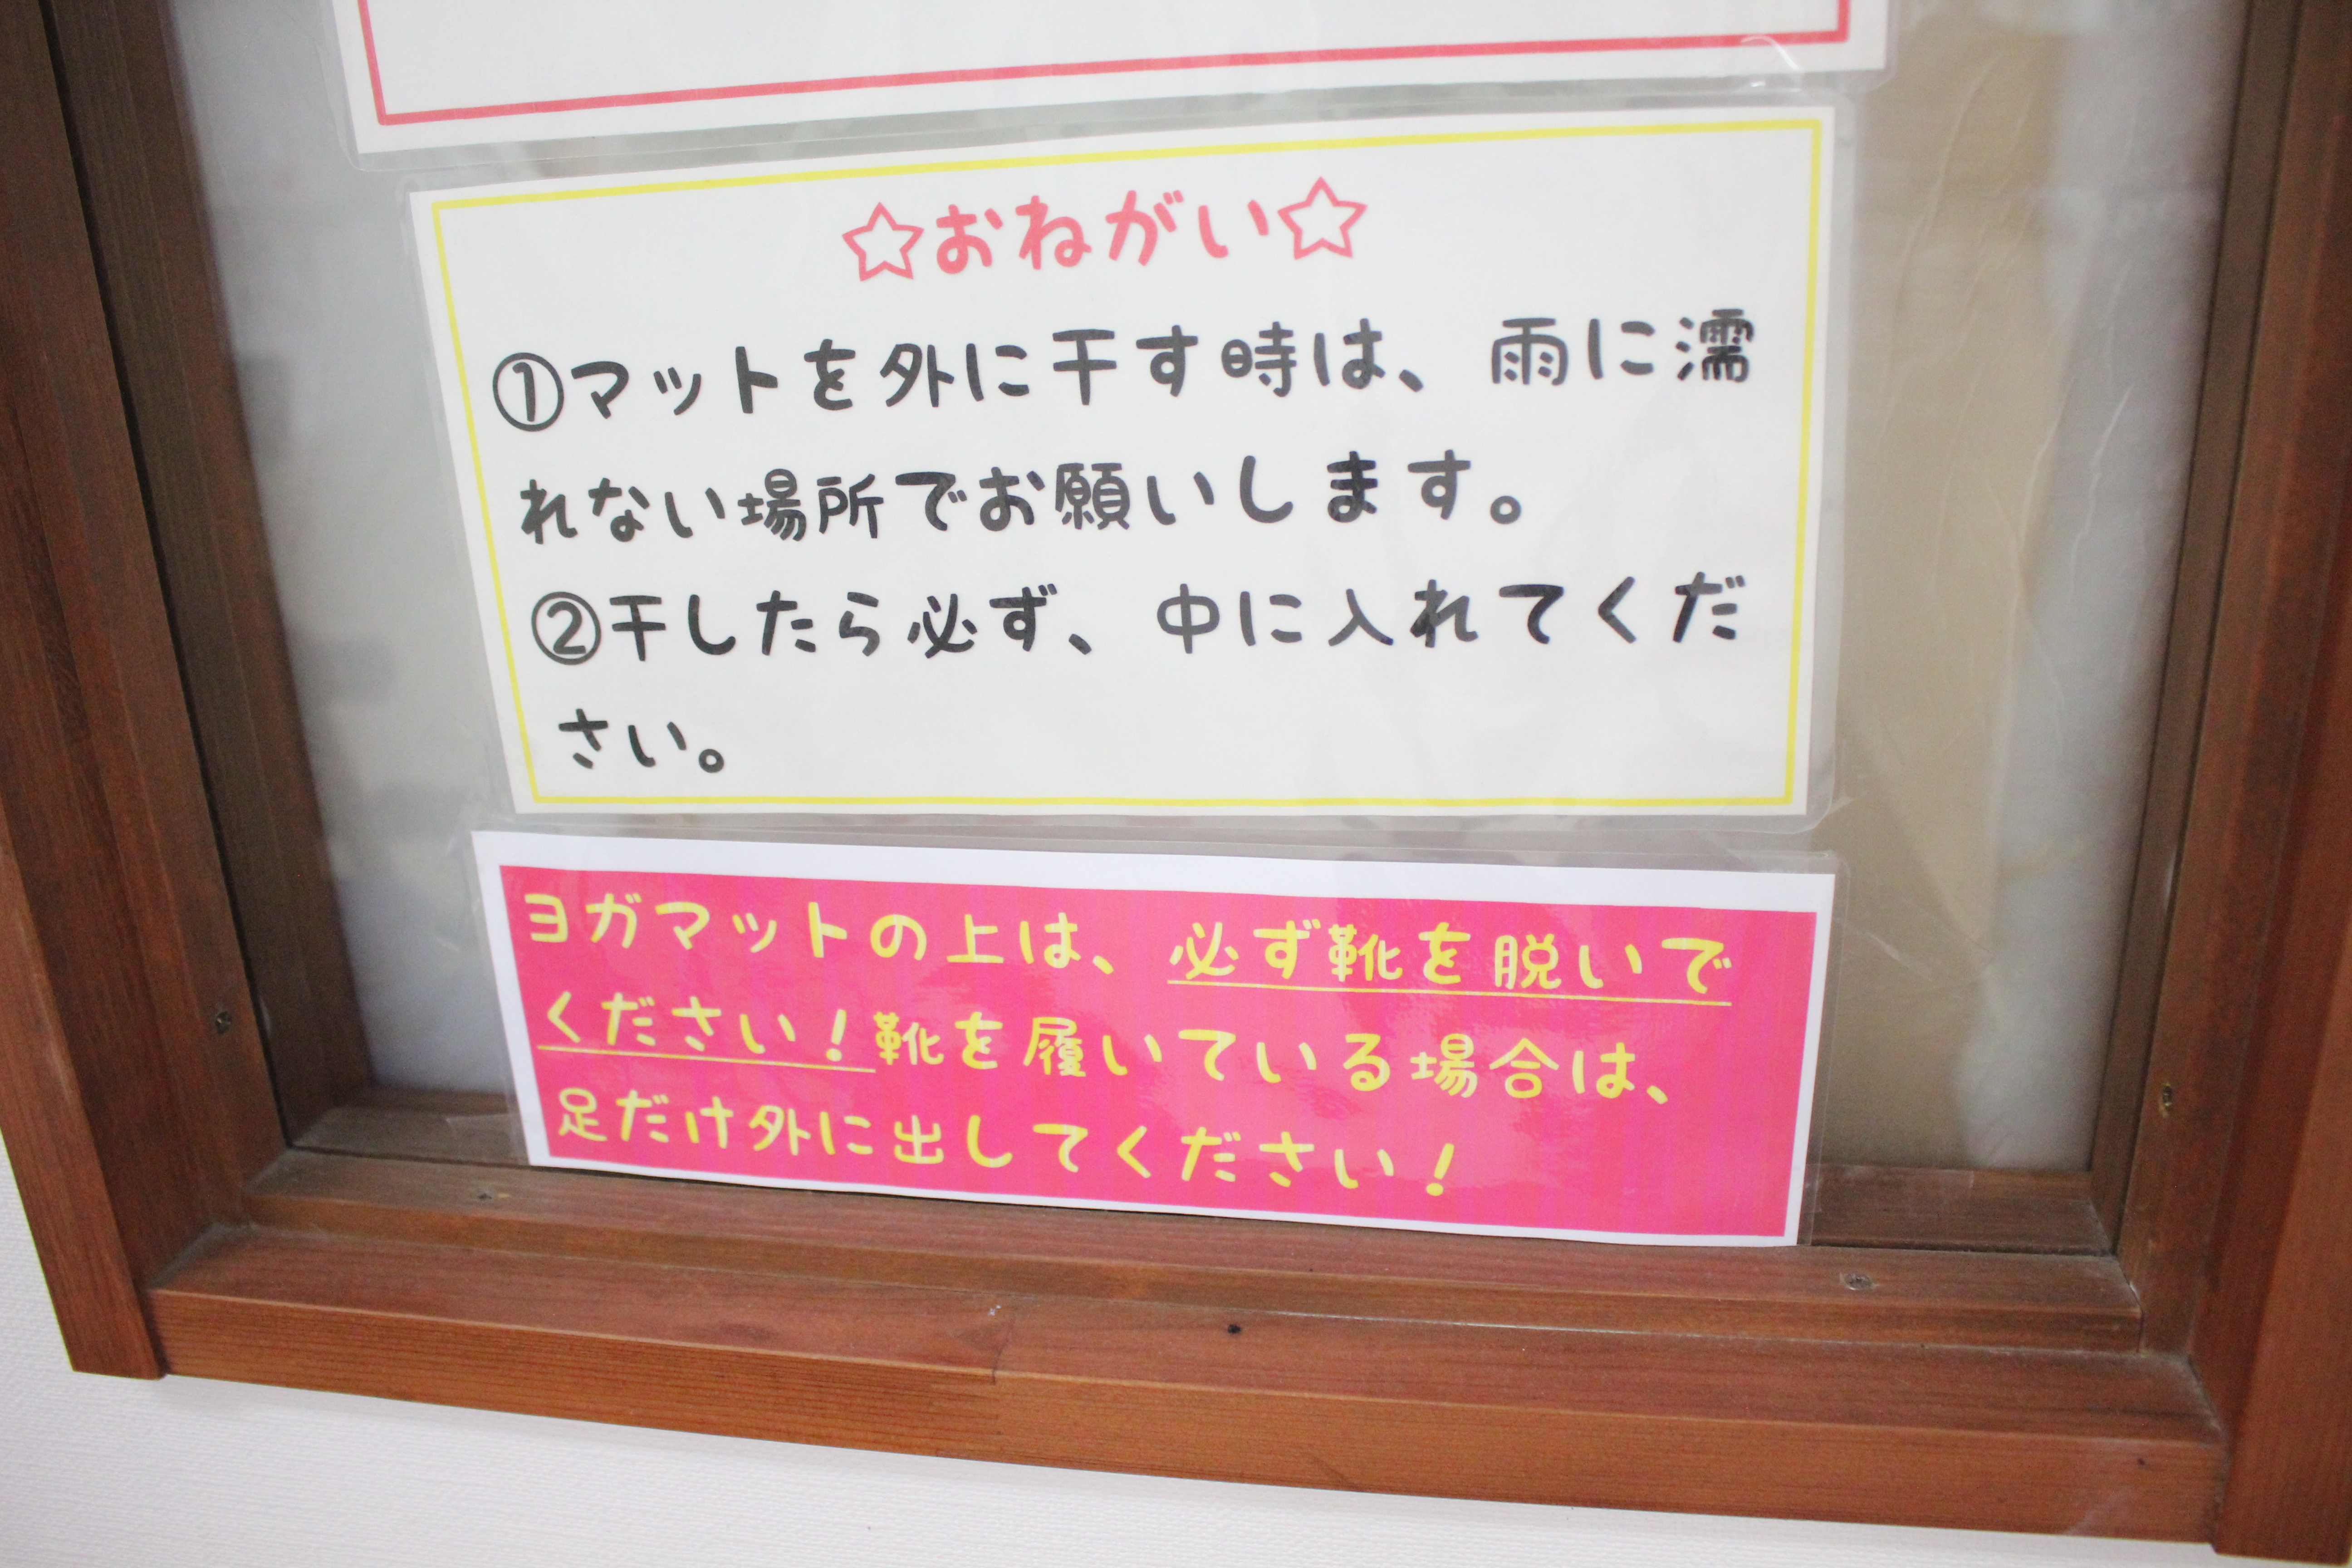 ☆おねがい☆
①マットを外に干す時は、雨に濡
れない場所でお願いします。
②干したら必ず、中に入れてくだ
さい。
ヨガマットの上は、必ず靴を脱いで
ください！靴を履いている場合は、
足だけ外に出してください！